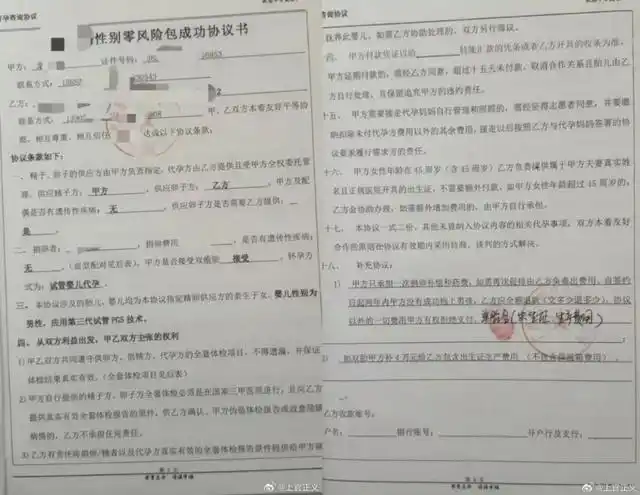 孕咨询协议
性别零风险包成功协议书
甲方：
证件号码：
联系方式：
乙方：
联系方式：
甲、乙双方本着友好平等协
商、相互尊重、相互信任
达成以下协议条款：
协议条款如下：
一、精子、卵子的供应方由甲方负责指定，代孕方由乙方提供且受甲方全权委托管
理。供应精子方：甲方，供应卵子方：乙方，甲方及配
偶是否有遗传性疾病：无，供应卵子方是否需要乙方提供：
是。
二、捐卵者：
捐卵费用
，是否有遗传性疾病：
无，（血型配对见后表），甲方是否接受双胞胎 接受，怀孕方
式为：试管婴儿代孕。
三、本协议涉及的胎儿、婴儿均为本协议指定精卵供应方的亲生子女，婴儿性别为
男性，应用第三代试管 PGS 技术。
四、从双方利益出发，甲乙双方主张的权利
1）甲乙双方共同遵守供卵方、捐精方、代孕方的全量体检项目，不得遗漏，并保证
体检结果真实有效。（全量体检项目见后表）
2）甲方自行提供的精子方、卵子方全量体检必须是在国家三甲医院进行，且向乙方
提供真实有效全量体检报告的原件，供乙方确认，甲方伪造体检报告或故意隐瞒
病情的，乙方不承担任何责任。
3）乙方有责任将捐卵/精者以及代孕方真实有效的全量体检报告的原件提供给甲方确
抚养此婴儿，如需乙方协助处理的，双方另行商议。
四、甲方付款凭证以给
转账汇款的凭条或者乙方开具的收条为准。
甲方延期付款的，需经乙方同意，超过十五天未付款，取消合作关系且胎儿由乙
方自行处理，且保留追究甲方的违约责任。
十五、甲方需要接走代孕妈妈自行管理和照顾的，需经征得志愿者同意，并要缴
纳扣除未付代孕方费用以外的其余费用，接走以后按照乙方与代孕妈妈签署的协
议要求履行需求方的责任。
十六、甲方女性年龄在 45 周岁（含 45 周岁）乙方免费提供属于甲方夫妻真实姓
名且正规医院开具的出生证，不需要额外付款，如甲方女性年龄超过 45 周岁的，
乙方会协助办理，如需额外增加费用的，由甲方自行承担。
十七、本协议一式二份，其他无法纳入协议内容的相关代孕事项，双方本着友好
合作的原则在协议有效期内采用协商、谈判的方式解决。
十八、补充协议：
1）甲方只承担一次捐卵补偿和药费，如需再次捐卵由乙方免费出费用，自签约
日起两年内甲方没有成功抱上男孩，乙方应全额退款（交多少退多少），协议
以外的一切费用甲方有权拒绝支付。
2）如双胎甲方补 4 万元给乙方包含出生证生产费用（不包含保温箱费用）。
乙方收款账号：
户名：
银行账号：
开户行及支行：
@上官正义
@上官正义